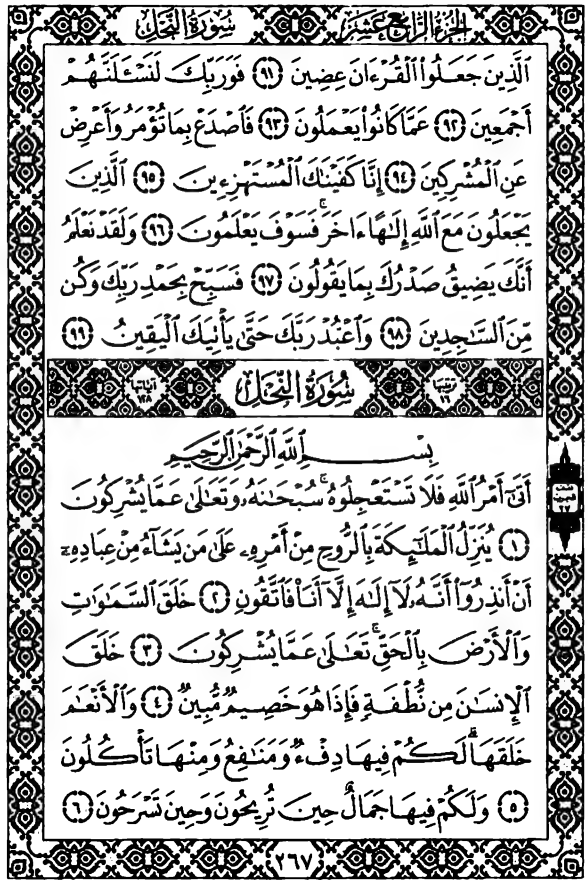 الجزء الرابع عشر سورة النحل
الَّذِينَ جَعَلُوا الْقُرْءَانَ عِضِينَ ﴿٩١﴾ فَوَرَبِّكَ لَنَسْـَٔلَنَّهُمْ
أَجْمَعِينَ ﴿٩٢﴾ عَمَّا كَانُوا يَعْمَلُونَ ﴿٩٣﴾ فَاصْدَعْ بِمَا تُؤْمَرُ وَأَعْرِضْ
عَنِ الْمُشْرِكِينَ ﴿٩٤﴾ إِنَّا كَفَيْنَٰكَ الْمُسْتَهْزِءِينَ ﴿٩٥﴾ الَّذِينَ
يَجْعَلُونَ مَعَ اللَّهِ إِلَٰهًا ءَاخَرَ ۚ فَسَوْفَ يَعْلَمُونَ ﴿٩٦﴾ وَلَقَدْ نَعْلَمُ
أَنَّكَ يَضِيقُ صَدْرُكَ بِمَا يَقُولُونَ ﴿٩٧﴾ فَسَبِّحْ بِحَمْدِ رَبِّكَ وَكُن
مِّنَ السَّٰجِدِينَ ﴿٩٨﴾ وَاعْبُدْ رَبَّكَ حَتَّىٰ يَأْتِيَكَ الْيَقِينُ ﴿٩٩﴾
ترتيبها ١٦ سُورَةُ النَّحْلِ آياتها ١٢٨
بِسْمِ اللَّهِ الرَّحْمَٰنِ الرَّحِيمِ
أَتَىٰٓ أَمْرُ اللَّهِ فَلَا تَسْتَعْجِلُوهُ ۚ سُبْحَٰنَهُۥ وَتَعَٰلَىٰ عَمَّا يُشْرِكُونَ
﴿١﴾ يُنَزِّلُ الْمَلَٰٓئِكَةَ بِالرُّوحِ مِنْ أَمْرِهِۦ عَلَىٰ مَن يَشَآءُ مِنْ عِبَادِهِۦٓ
أَنْ أَنذِرُوٓا أَنَّهُۥ لَآ إِلَٰهَ إِلَّآ أَنَا فَاتَّقُونِ ﴿٢﴾ خَلَقَ السَّمَٰوَٰتِ
وَالْأَرْضَ بِالْحَقِّ ۚ تَعَٰلَىٰ عَمَّا يُشْرِكُونَ ﴿٣﴾ خَلَقَ
الْإِنسَٰنَ مِن نُّطْفَةٍ فَإِذَا هُوَ خَصِيمٌ مُّبِينٌ ﴿٤﴾ وَالْأَنْعَٰمَ
خَلَقَهَا ۗ لَكُمْ فِيهَا دِفْءٌ وَمَنَٰفِعُ وَمِنْهَا تَأْكُلُونَ
﴿٥﴾ وَلَكُمْ فِيهَا جَمَالٌ حِينَ تُرِيحُونَ وَحِينَ تَسْرَحُونَ ﴿٦﴾
٢٦٧